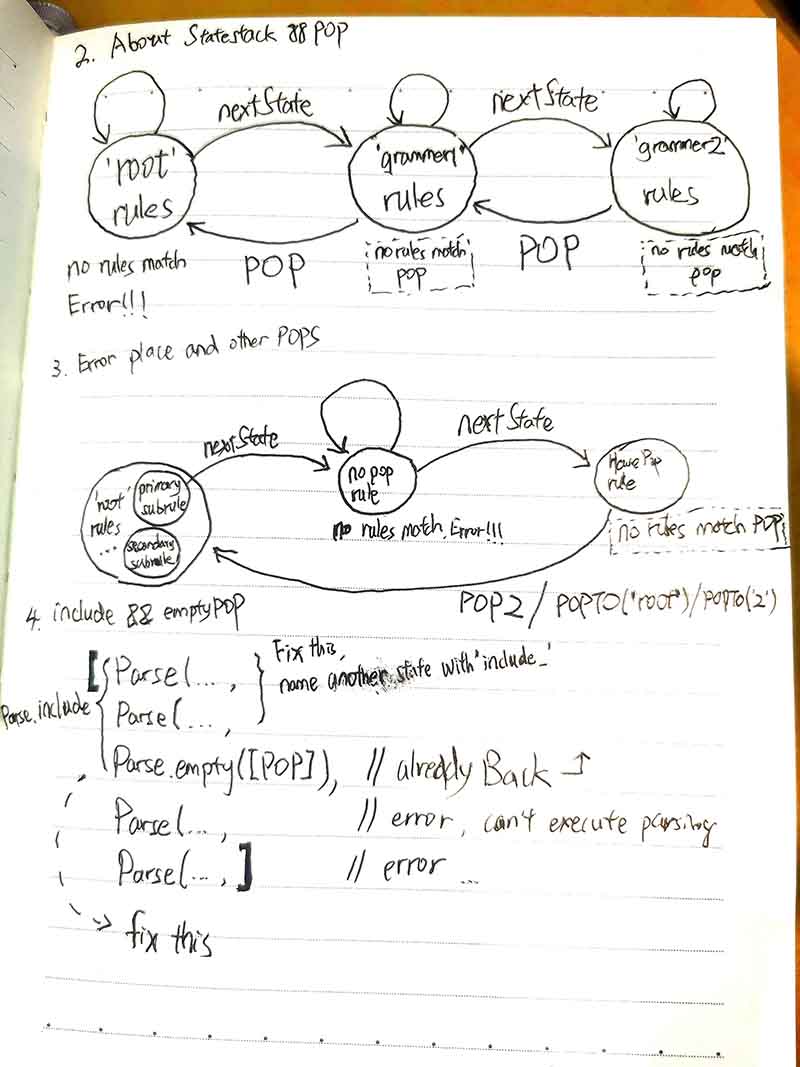 2. About Statestack && POP
nextState
nextState
'root'
rules
'grammer1'
rules
'grammer2'
rules
POP
POP
no rules match
Error!!!
no rules match
pop
no rules match
pop
3. Error place and other POPS
nextState
nextState
'root'
rules
...
primary
subrule
secondary
subrule
no pop
rule
Have Pop
rule
no rules match, Error!!!
no rules match POP
POP2 / POPTO("root") / POPTO('2')
4. include && emptyPOP
Parse.include
[ Parse(...,
Parse(...,
Fix this,
name another state with 'include_'
Parse.empty([POP]), // already Back
Parse(..., // error, can't execute parsing
Parse(...,] // error ...
fix this